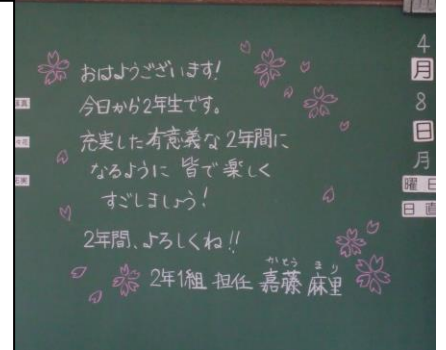 おはようございます!
今日から2年生です。
充実した有意義な2年間に
なるように 皆で楽しく
すごしましょう!
2年間、よろしくね!!
2年1組 担任 嘉藤 麻里
かとう まり
4
月
8
日
月
曜日
日直